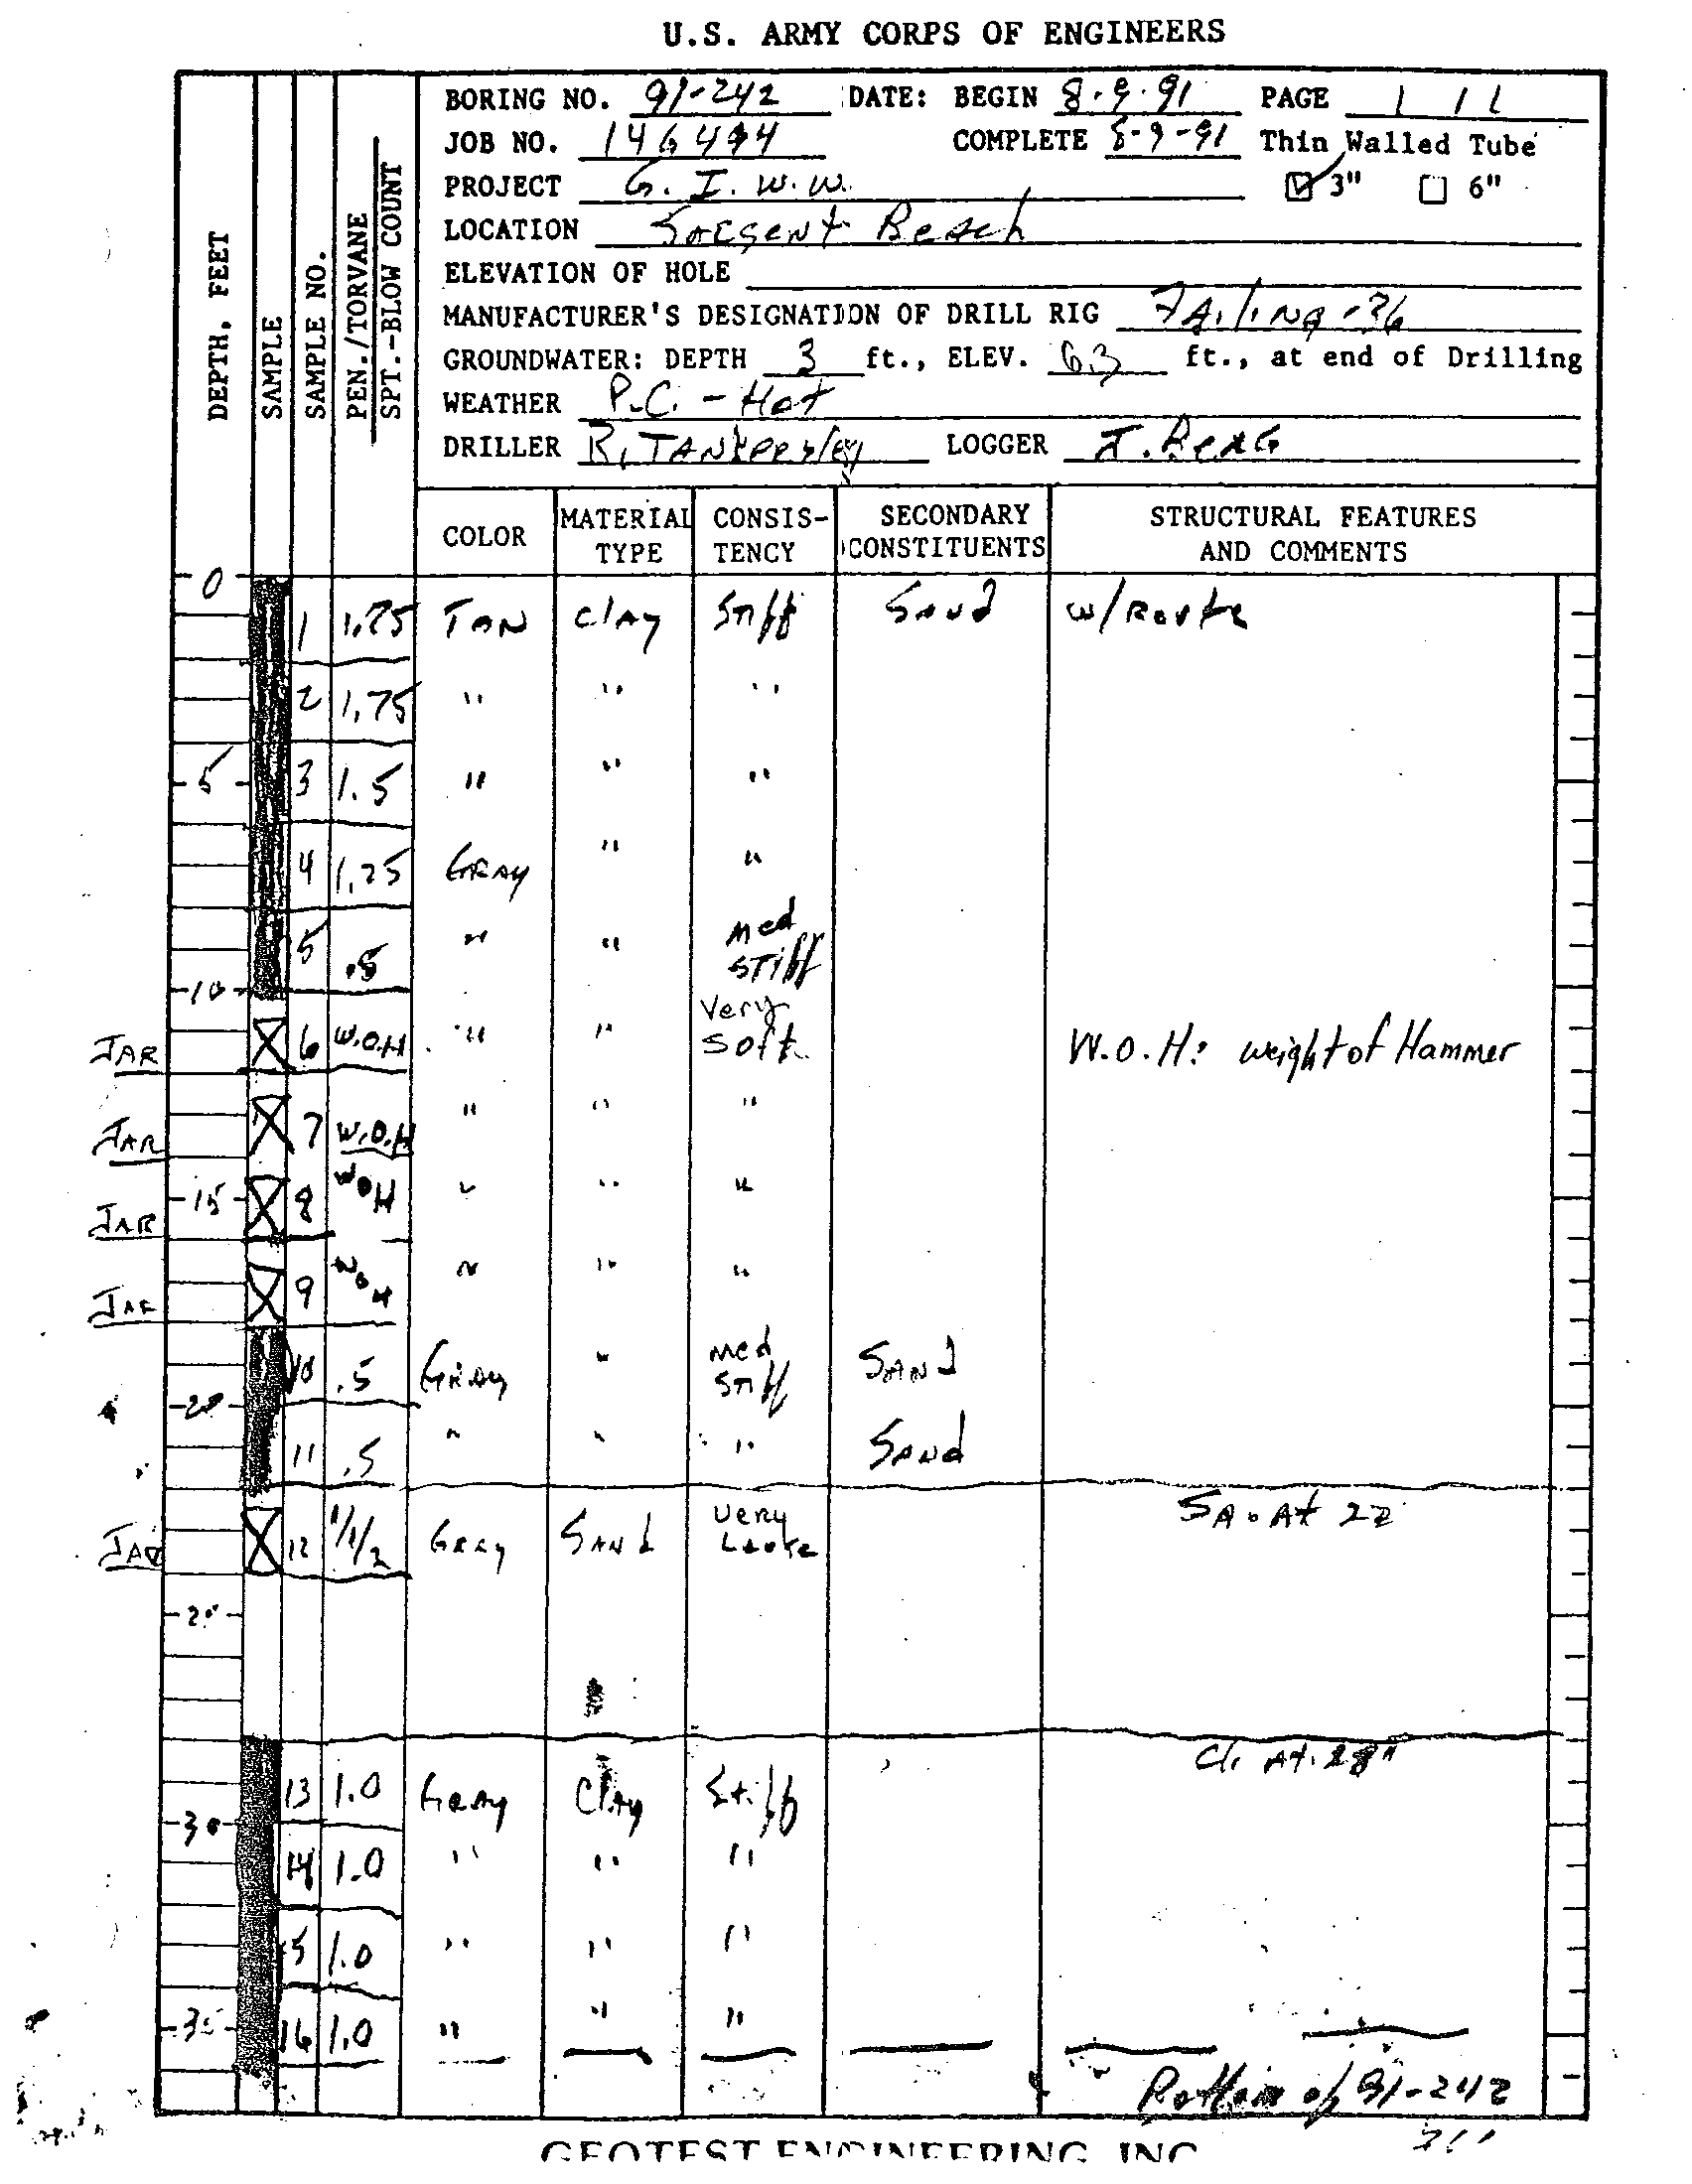 U.S. ARMY CORPS OF ENGINEERS
DEPTH, FEET
SAMPLE
SAMPLE NO.
PEN./TORVANE
SPT.-BLOW COUNT
BORING NO. 91-242 DATE: BEGIN 8.9.91 PAGE 1 / 1
JOB NO. COMPLETE 8-9-91 Thin Walled Tube
PROJECT G.I.W.W. 3" 6"
LOCATION Sargent Beach
ELEVATION OF HOLE
MANUFACTURER'S DESIGNATION OF DRILL RIG Failing -36
GROUNDWATER: DEPTH 3 ft., ELEV. ft., at end of Drilling
WEATHER P.C. - Hot
DRILLER R. Tankersley LOGGER
COLOR MATERIAL TYPE CONSIS-TENCY SECONDARY CONSTITUENTS STRUCTURAL FEATURES AND COMMENTS
0
1 1.75 TAN Clay Stiff Sand w/Roots
2 1.75 " " "
5 3 1.5 " " "
4 1.25 GRAY " "
5 .5 " " Med Stiff
10
JAR 6 W.O.H " " Very Soft W.O.H: weight of Hammer
JAR 7 W.O.H " " "
JAR 15 8 WOH " " "
JAR 9 WOH " " "
10 .5 Gray " Med Stiff Sand
20
11 .5 " " " Sand
SA. At 22
JAR 12 1/1/2 Gray Sand Very Loose
CL. At. 28"
13 1.0 Gray Clay Stiff
30
14 1.0 " " "
15 1.0 " " "
35 16 1.0 " " "
Bottom of 91-242
GEOTEST ENGINEERING INC